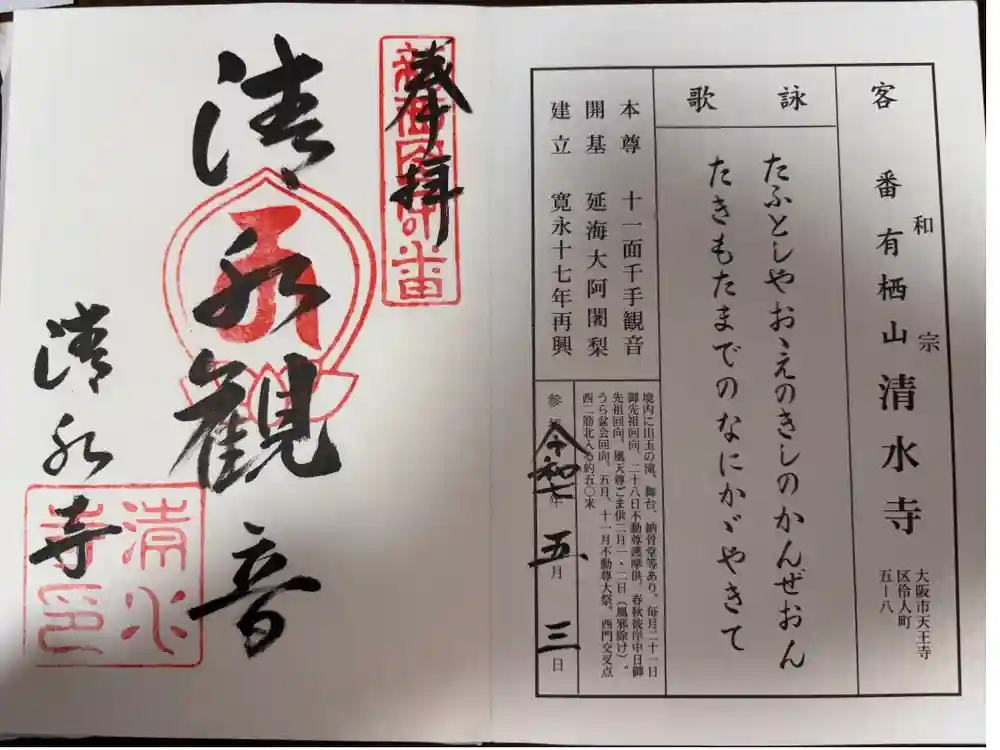 客番有栖山清水寺
和宗
大阪市天王寺
区伶人町
五ー八
詠歌
たふとしやおゝえのきしのかんぜおん
たきもたまでのなにかゞやきて
本尊 十一面千手観音
開基 延海大阿闍梨
建立 寛永十七年再興
境内に出玉の滝、舞台、納骨堂等あり。毎月二十一日
御先祖回向、二十八日不動尊護摩供、春秋彼岸中日御
先祖回向、風天尊ごま供二月一、二日（風邪除け）。
うら盆会回向、五月、十一月不動尊大祭、西門交叉点
西二筋北入る約五〇米
令和七年五月三日
奉拝
清水観音
清水寺
清水
寺印